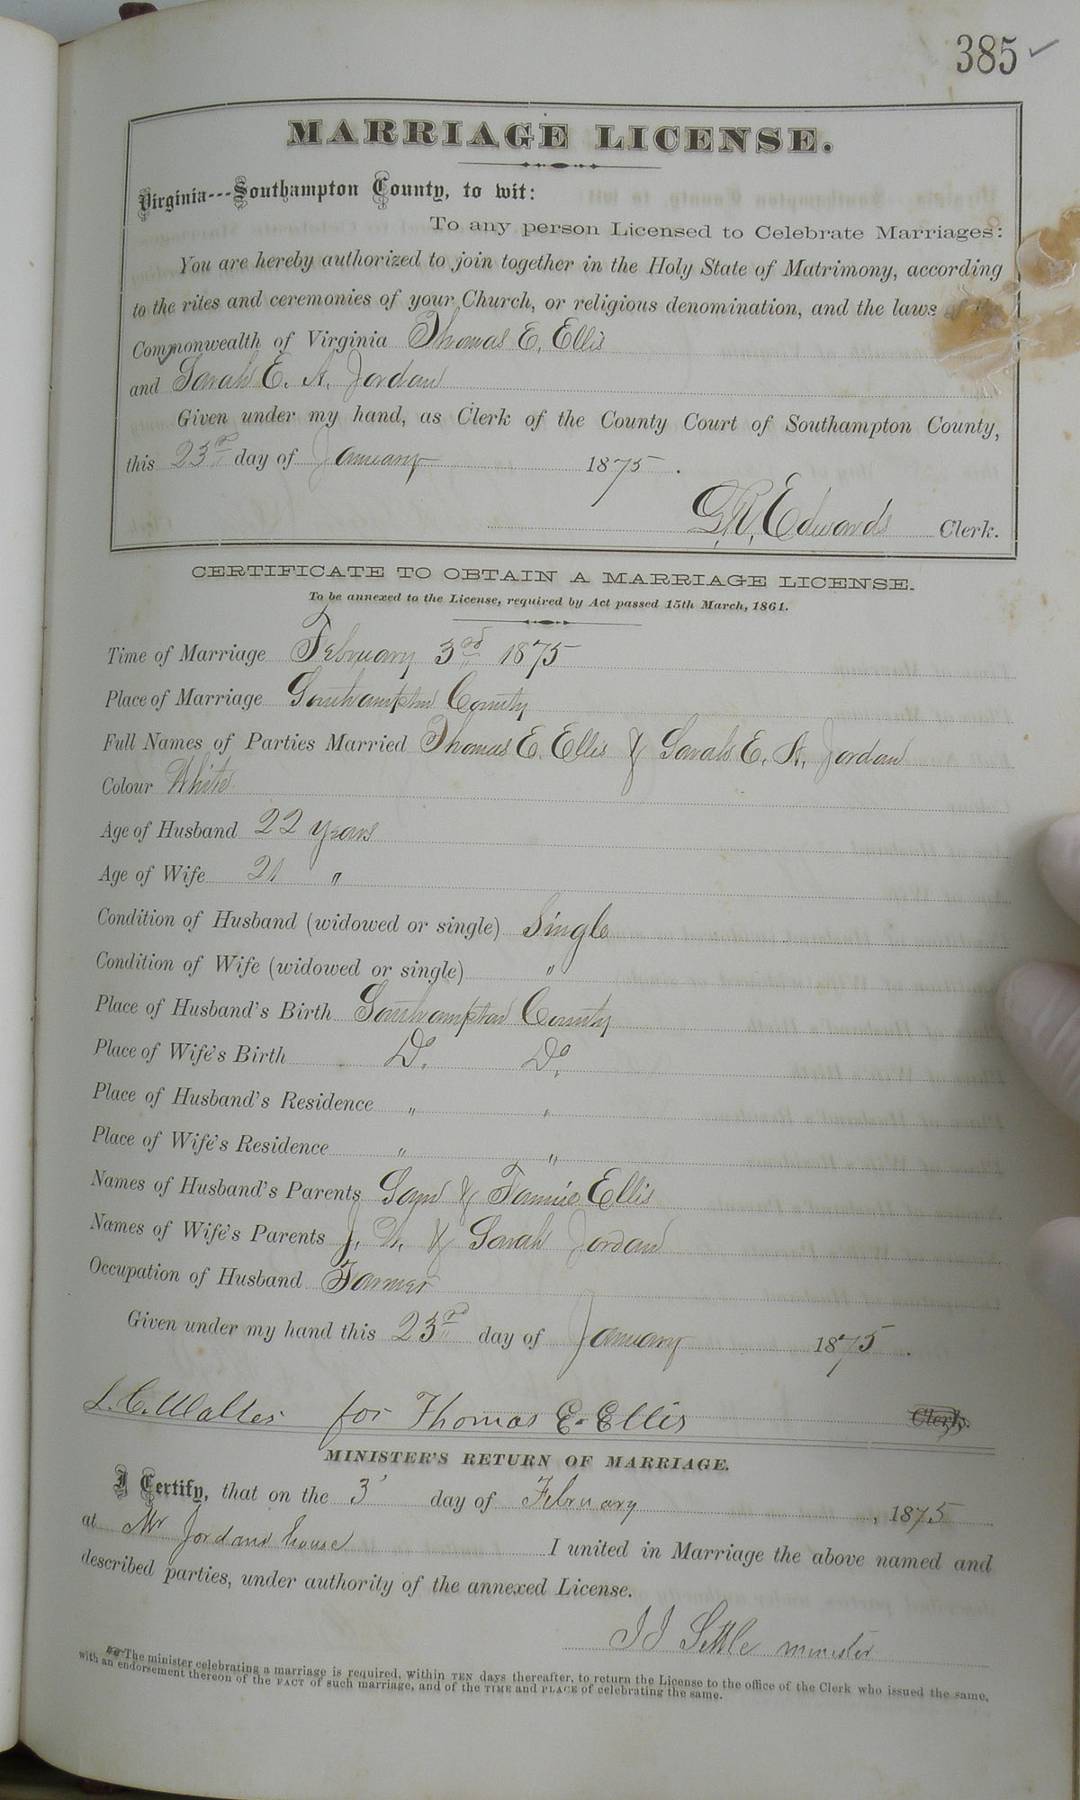 385 ✓
MARRIAGE LICENSE.
Virginia---Southampton County, to wit:
To any person Licensed to Celebrate Marriages:
You are hereby authorized to join together in the Holy State of Matrimony, according
to the rites and ceremonies of your Church, or religious denomination, and the laws of the
Commonwealth of Virginia Thomas E. Ellis
and Sarah E. A. Jordan
Given under my hand, as Clerk of the County Court of Southampton County,
this 23rd day of January 1875.
Edwards Clerk.
CERTIFICATE TO OBTAIN A MARRIAGE LICENSE.
To be annexed to the License, required by Act passed 15th March, 1861.
Time of Marriage February 3rd 1875
Place of Marriage Southampton County
Full Names of Parties Married Thomas E. Ellis & Sarah E. A. Jordan
Colour White
Age of Husband 22 years
Age of Wife 21 "
Condition of Husband (widowed or single) Single
Condition of Wife (widowed or single) "
Place of Husband's Birth Southampton County
Place of Wife's Birth Do. Do.
Place of Husband's Residence " "
Place of Wife's Residence " "
Names of Husband's Parents & Fannie Ellis
Names of Wife's Parents J. & Sarah Jordan
Occupation of Husband Farmer
Given under my hand this 23rd day of January 1875.
L. C. for Thomas E. Ellis Clerk.
MINISTER'S RETURN OF MARRIAGE.
I Certify, that on the 3 day of February, 1875
at Mr Jordans house I united in Marriage the above named and
described parties, under authority of the annexed License.
Settle minister
The minister celebrating a marriage is required, within TEN days thereafter, to return the License to the office of the Clerk who issued the same,
with an endorsement thereon of the FACT of such marriage, and of the TIME and PLACE of celebrating the same.